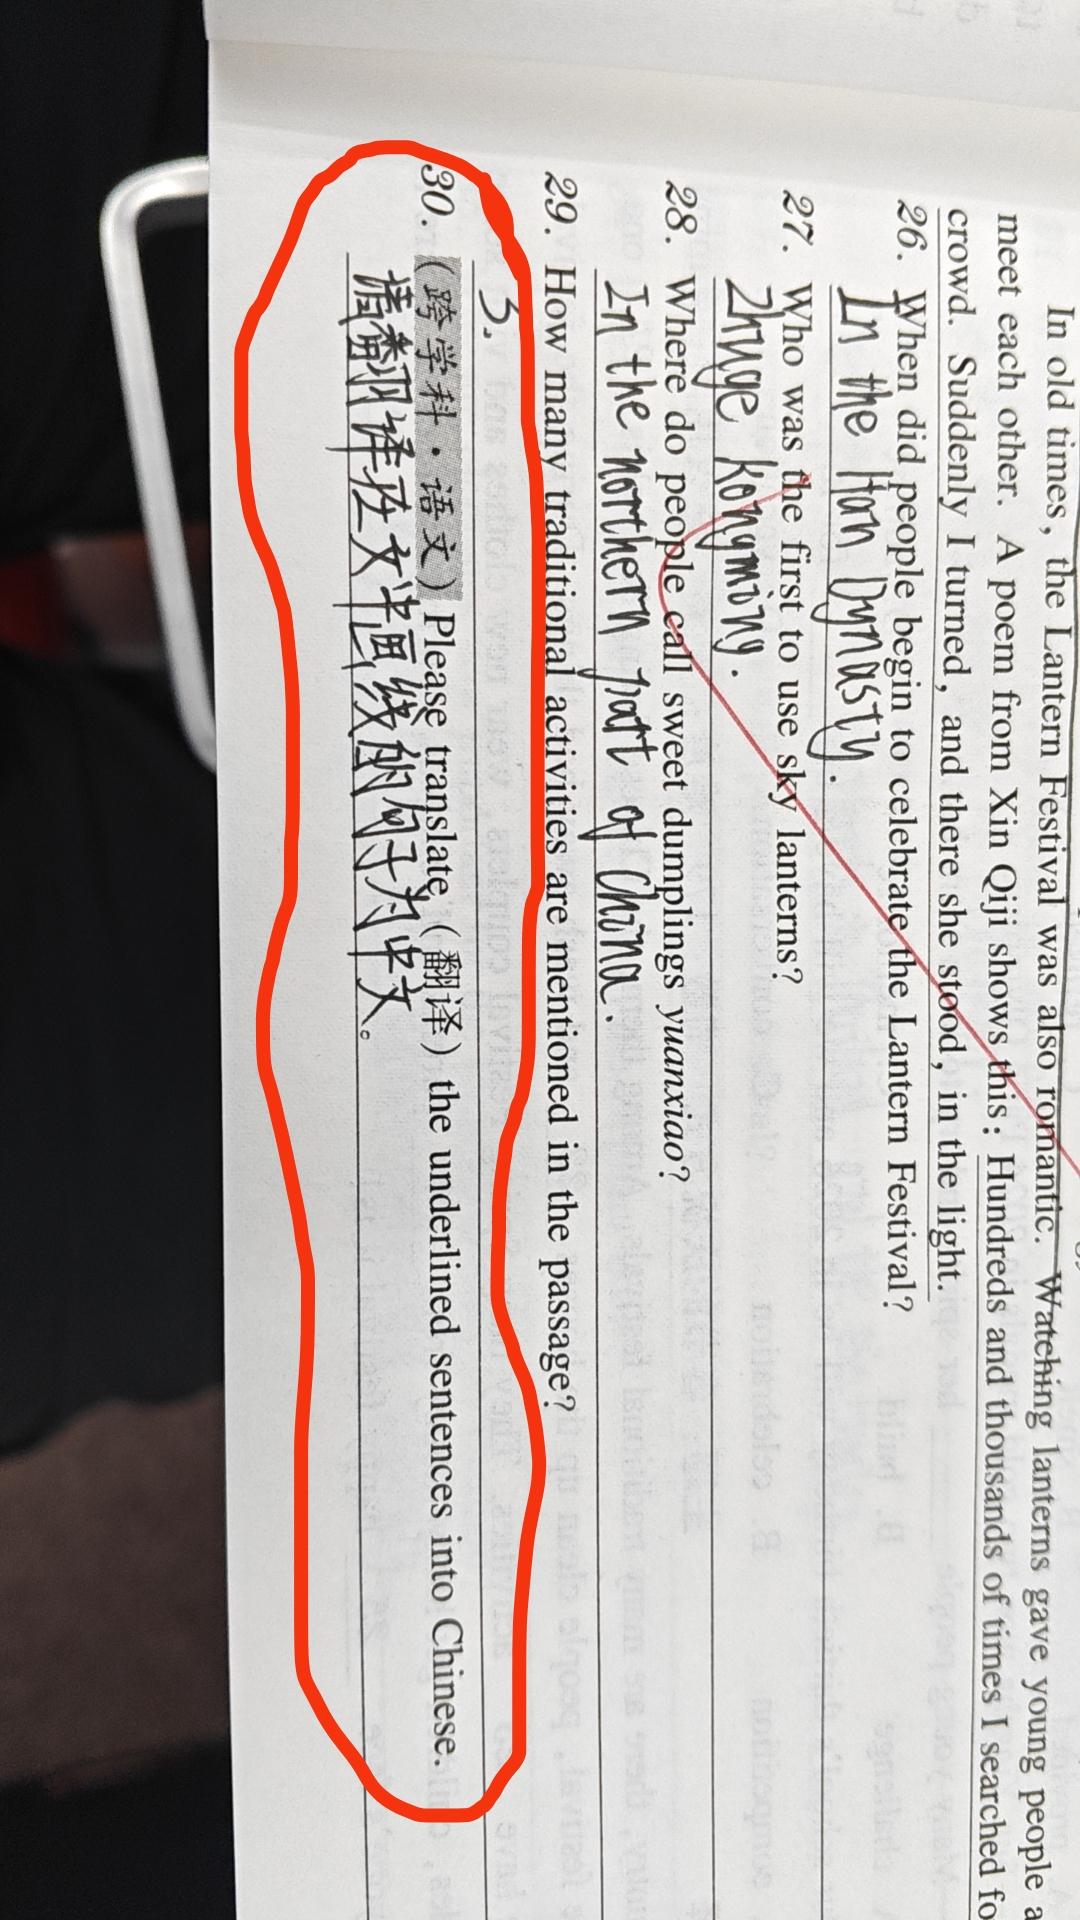 In old times, the Lantern Festival was also romantic. Watching lanterns gave young people a
meet each other. A poem from Xin Qiji shows this: Hundreds and thousands of times I searched fo
crowd. Suddenly I turned, and there she stood, in the light.
26. When did people begin to celebrate the Lantern Festival?
In the Han Dynasty.
27. Who was the first to use sky lanterns?
Zhuge kongming.
28. Where do people call sweet dumplings yuanxiao?
In the northern part of China.
29. How many traditional activities are mentioned in the passage?
3.
30. (跨学科·语文) Please translate (翻译) the underlined sentences into Chinese.
请翻译短文中画线的句子为中文。